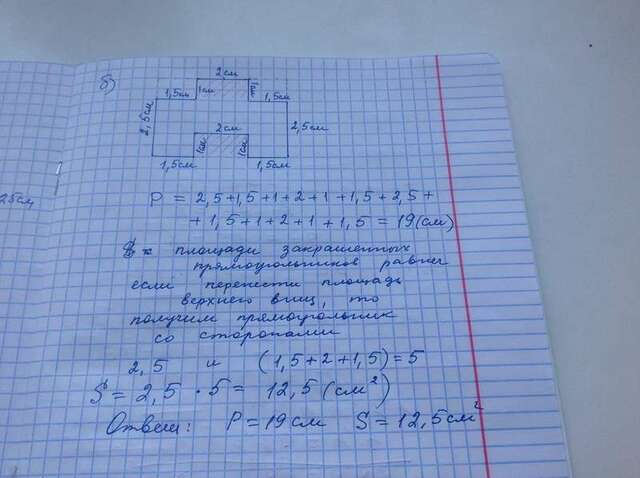 б)
2см
1,5см 1см 1,5см
2,5см 2см 2,5см
1см 1см
1,5см 1,5см
25см,
P = 2,5+1,5+1+2+1+1,5+2,5+
+1,5+1+2+1+1,5 = 19(см)
площади закрашенных
прямоугольников равны
если перенести площадь
верхнего вниз, то
получим прямоугольник
со сторонами
2,5 и (1,5+2+1,5)=5
S = 2,5 · 5 = 12,5 (см²)
Ответ: P = 19см S = 12,5см²